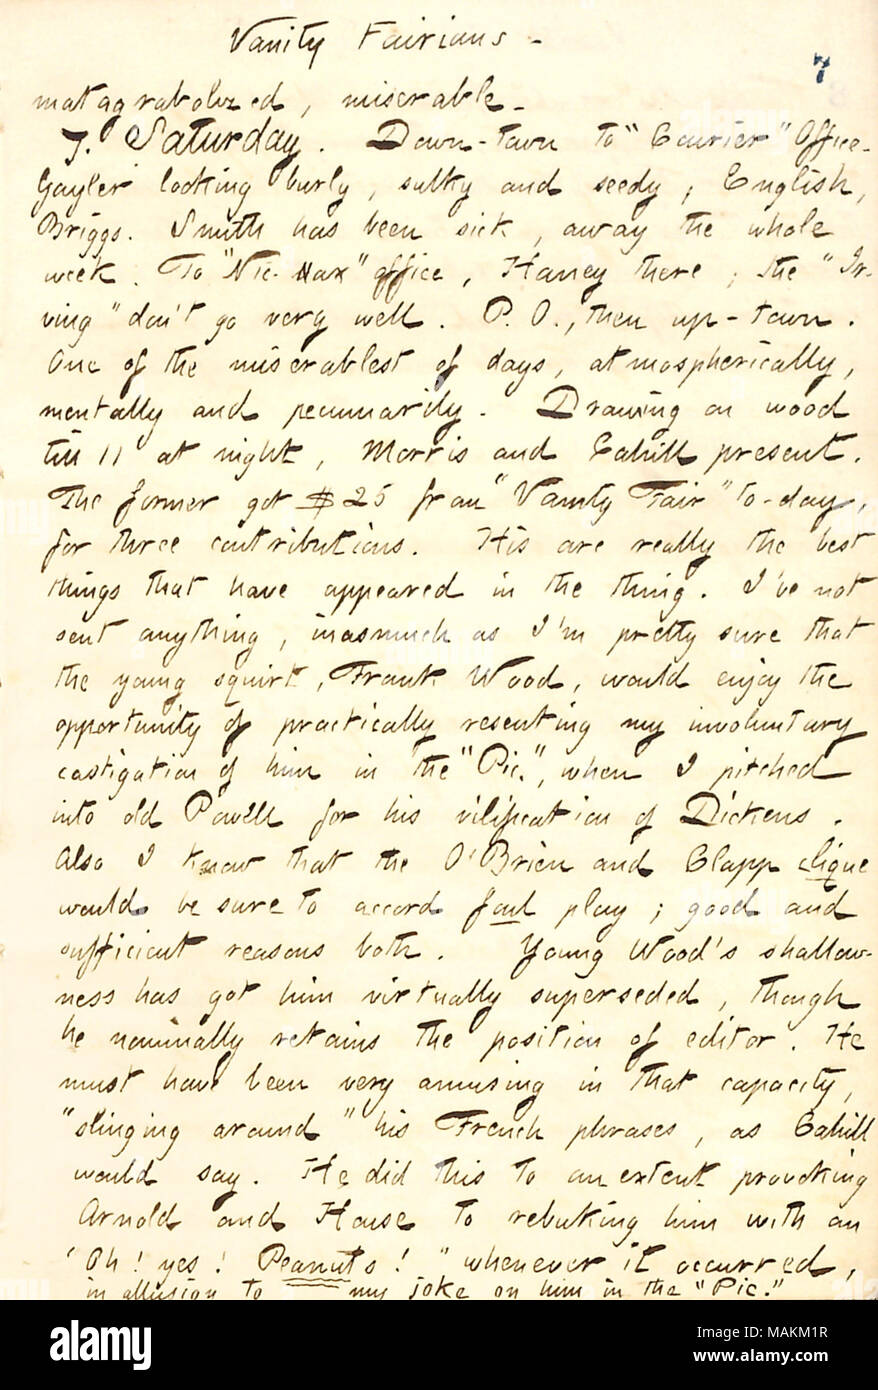 Vanity Fairians -
7
matagrabolized, miserable -
7. Saturday. Down-town to "Courier" Office -
Gayler looking burly, sulky and seedy; English,
Briggs. Smith has been sick, away the whole
week. To "Nic-Nax" office, Haney there; the "Ir-
ving" don't go very well. P. O., then up-town.
One of the miserablest of days, atmospherically,
mentally and pecuniarily. Drawing on wood
till 11 at night, Morris and Cahill present.
The former got $25 from "Vanity Fair" to-day,
for three contributions. His are really the best
things that have appeared in the thing. I've not
sent anything, inasmuch as I'm pretty sure that
the young squirt, Frank Wood, would enjoy the
opportunity of practically resenting my involuntary
castigation of him in the "Pic.", when I pitched
into old Powell for his vilification of Dickens.
Also I know that the O'Brien and Clapp clique
would be sure to accord foul play; good and
sufficient reasons both. Young Wood's shallow-
ness has got him virtually superseded, though
he nominally retains the position of editor. He
must have been very amusing in that capacity,
"slinging around" his French phrases, as Cahill
would say. He did this to an extent provoking
Arnold and House to rebuking him with an
'Oh! yes! Peanuts!" whenever it occurred,
in allusion to my joke on him in the "Pic."
alamy
Image ID: MAKM1R
www.alamy.com